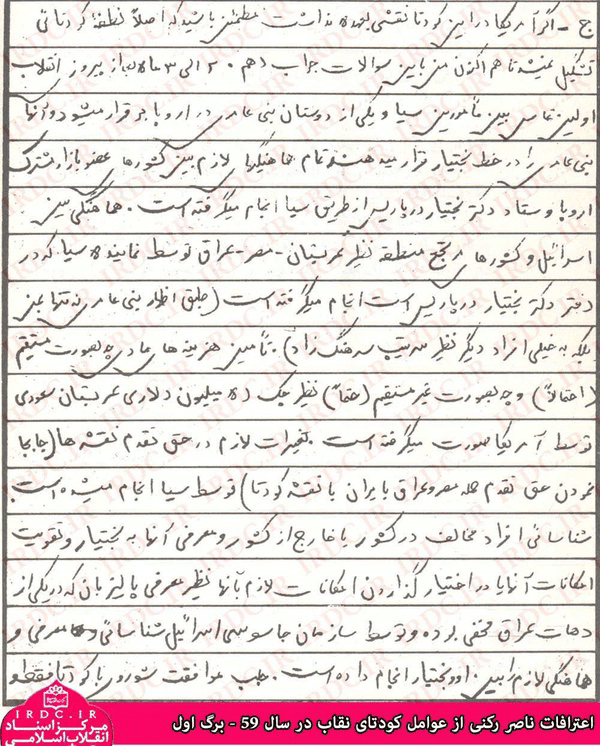 ج - اگر آمریکا در این کودتا نقشی بعهده نداشت مطمئن باشید که اصلاً نطفه کودتائی
تشکیل نمیشد تا هم اکنون من باین سوالات جواب دهم . ۲ الی ۳ ماه بعد از پیروزی انقلاب
اولین تماس بین مأمورین سیا و یکی از دوستان بنی عامری در اروپا برقرار میشود و آنها
بنی عامری را در خط بختیار قرار میدهند تمام هماهنگیهای لازم بین کشورهای عضو بازار مشترک
اروپا و ستاد دکتر بختیار در پاریس از طریق سیا انجام میگرفته است . هماهنگی بین
اسرائیل و کشورهای مرتجع منطقه نظیر عربستان - مصر - عراق توسط نماینده سیا که در
دفتر دکتر بختیار در پاریس است انجام میگرفته است (طبق اظهار بنی عامری نه تنها بمن
بلکه به خیلی افراد دیگر نظیر سرتیپ سرهنگ زاد) . تأمین هزینه های مادی چه بصورت مستقیم
(احتمالاً) و چه بصورت غیر مستقیم (حتماً) نظیر چک ۵ میلیون دلاری عربستان سعودی
توسط آمریکا صورت میگرفته است . تغییرات لازم در حق تقدم نقشه ها (جابجا
نمودن حق تقدم حمله مصر و عراق بایران با نقشه کودتا) توسط سیا انجام میشده است
شناسائی افراد مخالف در کشور یا خارج از کشور و معرفی آنها به بختیار و تقویت
امکانات آنها یا در اختیار گذاردن امکانات لازم بآنها نظیر معرفی پالیزبان که در یکی از
دهات عراق مخفی بوده و توسط سازمان جاسوسی اسرائیل شناسائی و معرفی و
هماهنگی لازم را بین او و بختیار انجام داده است . جلب موافقت شوروی با کودتا فقط و
IRDC.IR
مرکز اسناد
انقلاب اسلامی
اعترافات ناصر رکنی از عوامل کودتای نقاب در سال 59 - برگ اول